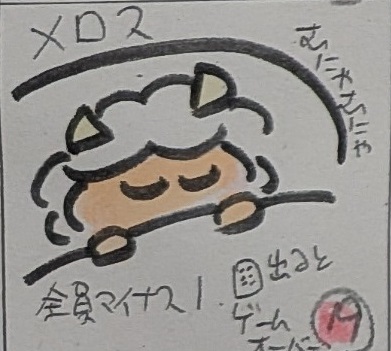 メロス
むにゃむにゃ
全員マイナス1.
出ると
ゲーム
オーバー
19